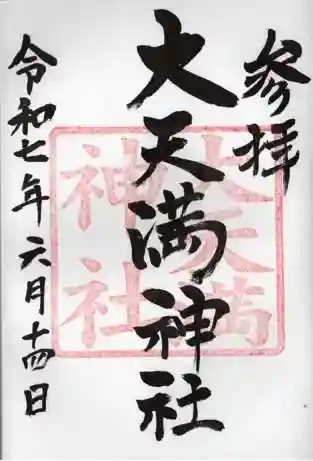 参拝
大天満神社
大天満
神社
令和七年六月十四日